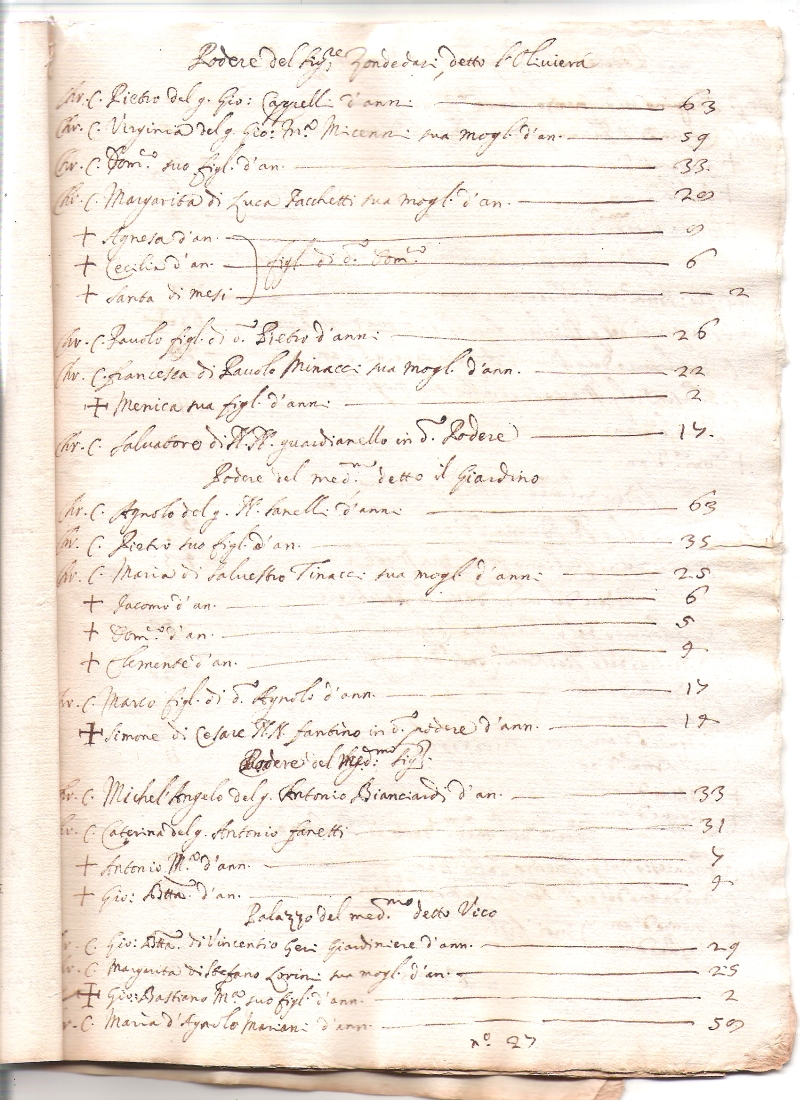 Podere del Sig.re Zondedari detto l'Olivierà
Chr. C. Pietro del q. Gio: Cappelli d'anni 63
Chr. C. Virginia del q. Gio: M.a Micenni sua mogl. d'an. 59
Chr. C. Dom.co suo figl. d'an. 33.
Chr. C. Margarita di Luca Pacchetti sua mogl. d'an. 29
+ Agnesa d'an. 9
+ Cecilia d'an. figl. di d.o Dom.co 6
+ Santa di mesi 2
Chr. C. Pavolo figl. di d.o Pietro d'anni 26
Chr. C. Francesca di Pavolo Minacci sua mogl. d'ann. 22
+ Menica sua figl. d'anni 2
Chr. C. Salvatore di N.N. guardianello in d.o Podere 17.
Podere del med.mo detto il Giardino
Chr. C. Agnolo del q. N. Sanelli d'anni 63
Chr. C. Pietro suo figl. d'an. 35
Chr. C. Maria di Salvestro Tinacci sua mogl. d'anni 25
+ Jacomo d'an. 6
+ Dom.co d'an. 5
+ Clemente d'an. 4
Chr. C. Marco figl. di d.o Agnolo d'ann. 17
+ Simone di Cesare N.N. fantino in d.o podere d'ann. 14
Podere del Med.mo Sig.
Chr. C. Michel'Angelo del q. Antonio Bianciardi d'an. 33
Chr. C. Caterina del q. Antonio Fanetti 31
+ Antonio M.a d'ann. 7
+ Gio: Btta. d'an. 4
Palazzo del med.mo detto Vico
C. Gio: Btta. di Vincentio Geri Giardiniere d'ann. 29
C. Margarita di Stefano Lorini sua mogl. d'an. 25
+ Gio: Bastiano M.a suo figl. d'ann. 2
C. Maria d'Agnolo Mariani d'ann. 59
n.o 27